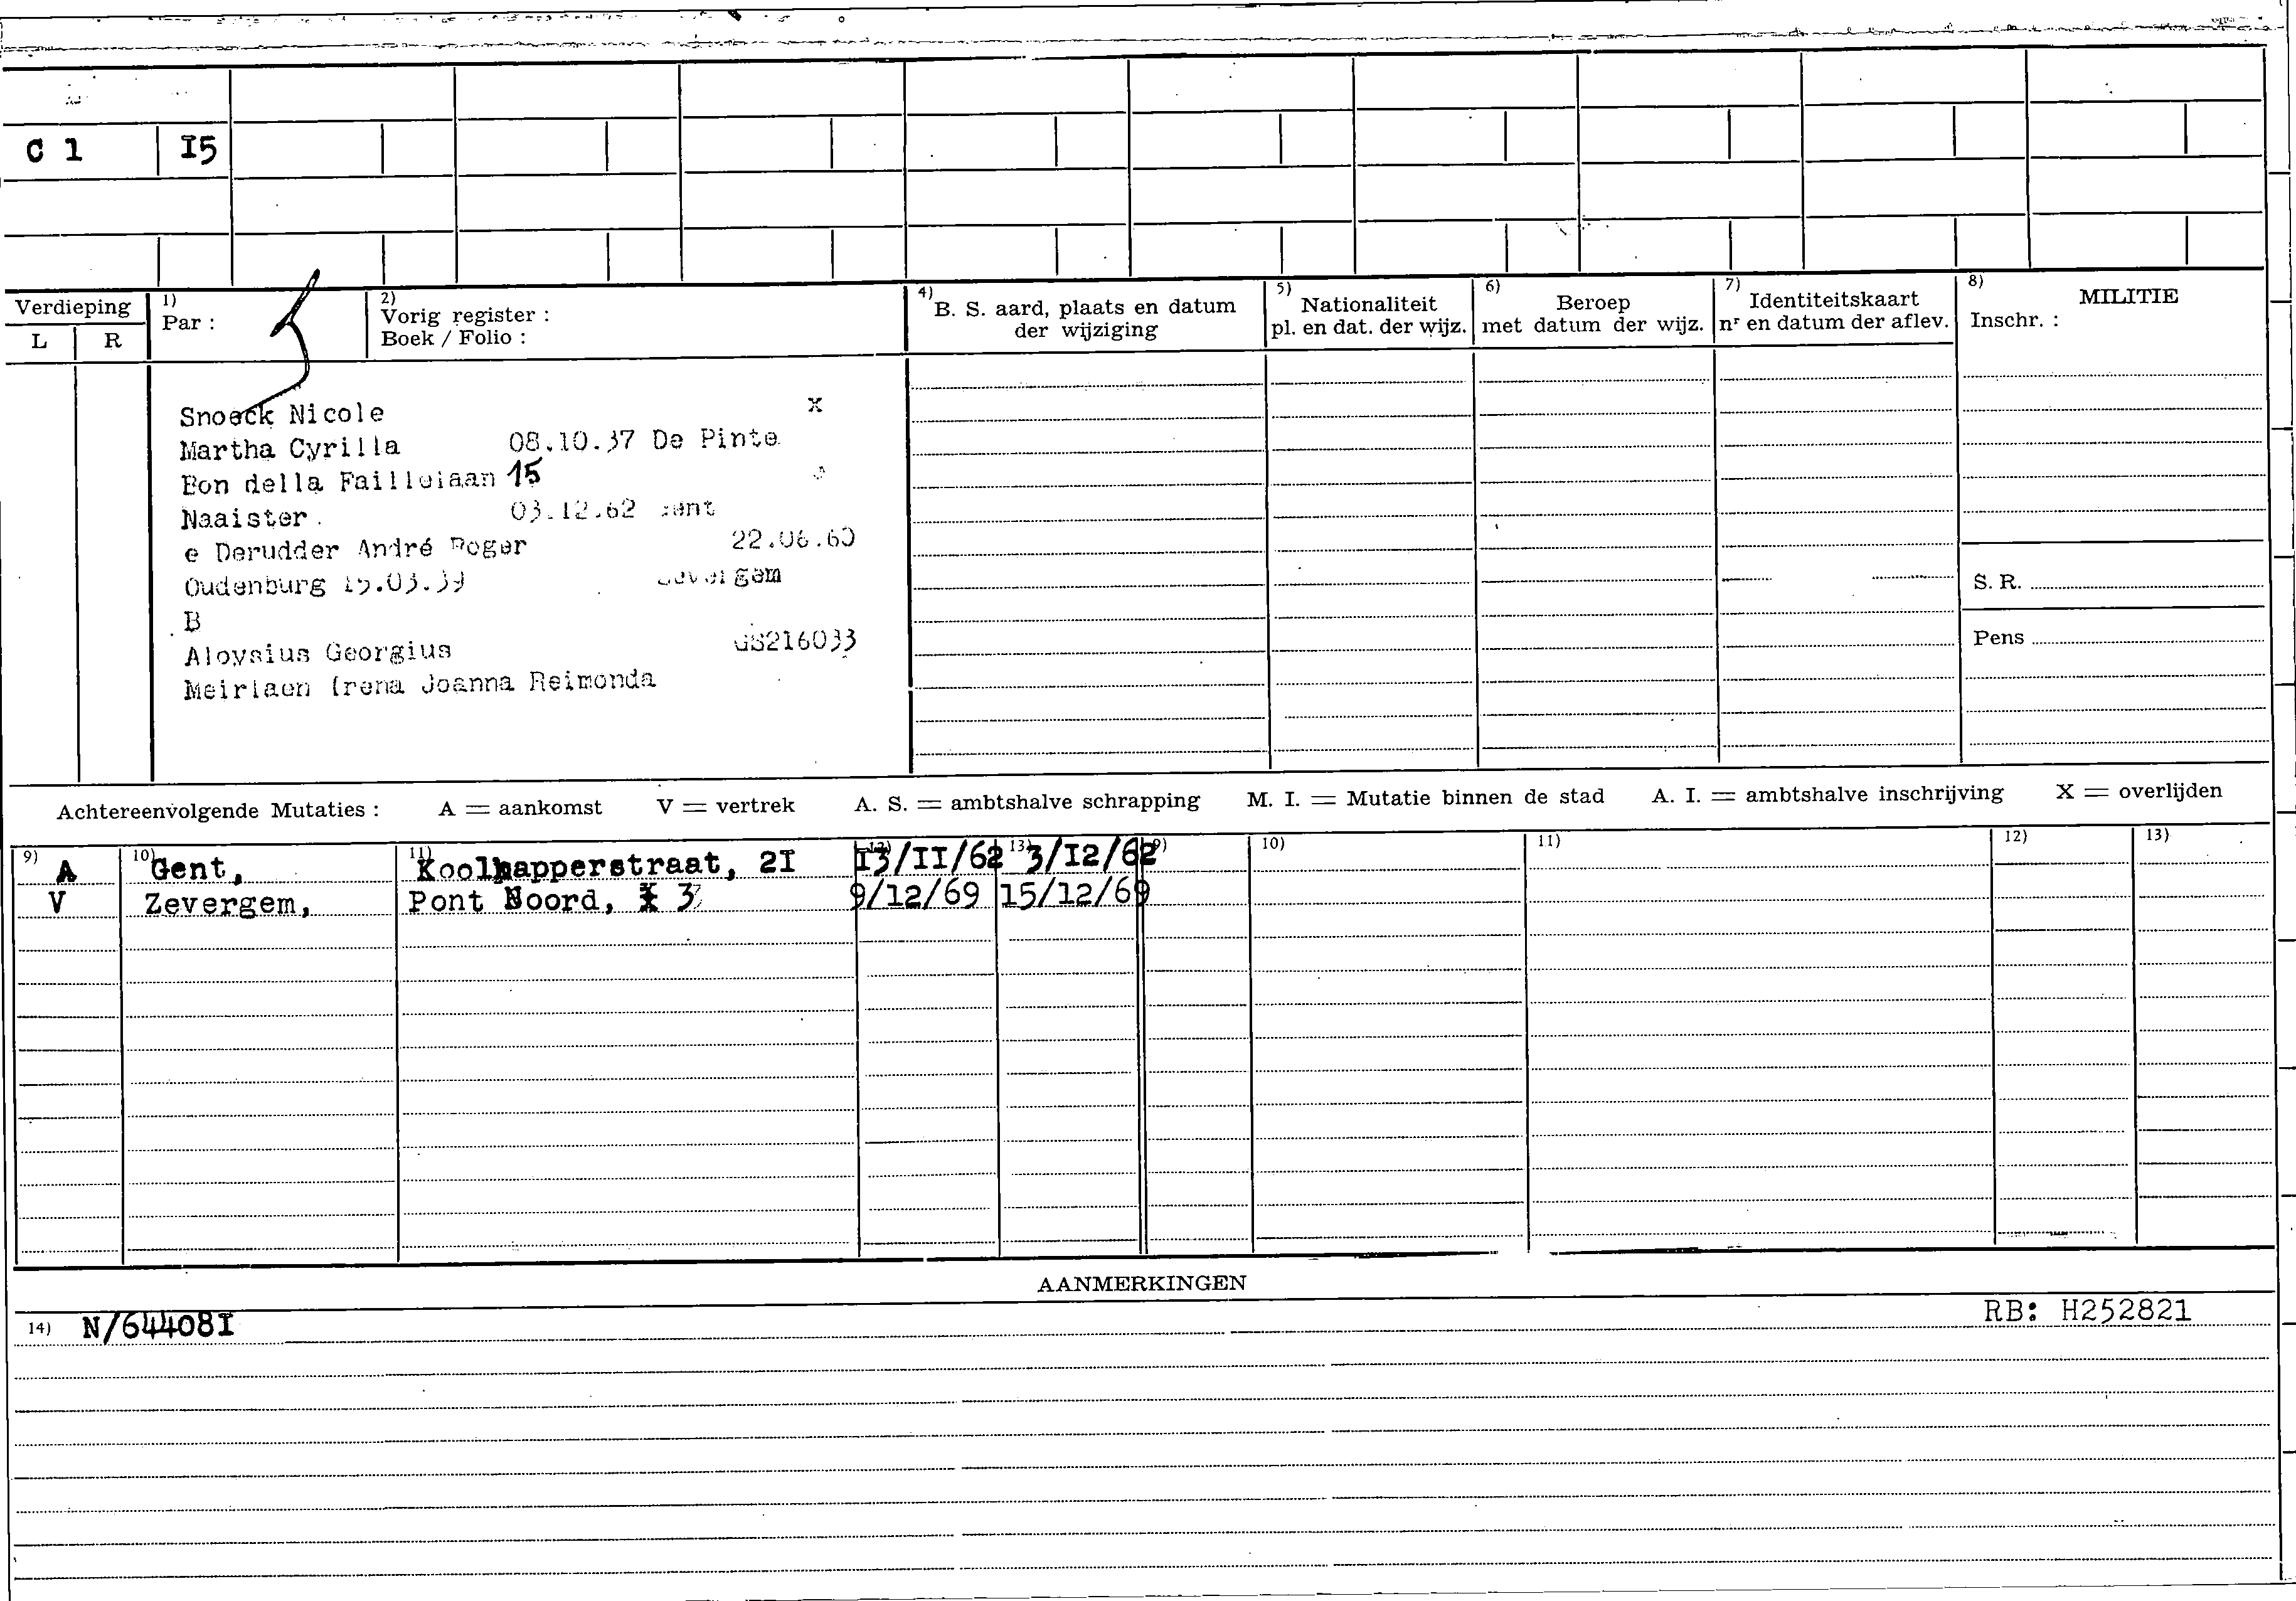 C 1 I5
Verdieping
L R
1)
Par :
2)
Vorig register :
Boek / Folio :
4) B. S. aard, plaats en datum
der wijziging
5) Nationaliteit
pl. en dat. der wijz.
6) Beroep
met datum der wijz.
7) Identiteitskaart
nr en datum der aflev.
8) MILITIE
Inschr. :
Snoeck Nicole x
Martha Cyrilla 08.10.37 De Pinte
Bon della Faillelaan 15
Naaister 03.12.62
e Derudder André Roger 22.06.60
Oudenburg
B
Aloysius Georgius GS216033
Meirlaen Irena Joanna Reimonda
S. R.
Pens
Achtereenvolgende Mutaties : A = aankomst V = vertrek A. S. = ambtshalve schrapping M. I. = Mutatie binnen de stad A. I. = ambtshalve inschrijving X = overlijden
9) 10) 11) 12) 13) 9) 10) 11) 12) 13)
A Gent, Koolkapperstraat, 2I I3/II/62 3/I2/62
V Zevergem, Pont Noord, 3 9/12/69 15/12/69
AANMERKINGEN
14) N/64408I RB: H252821